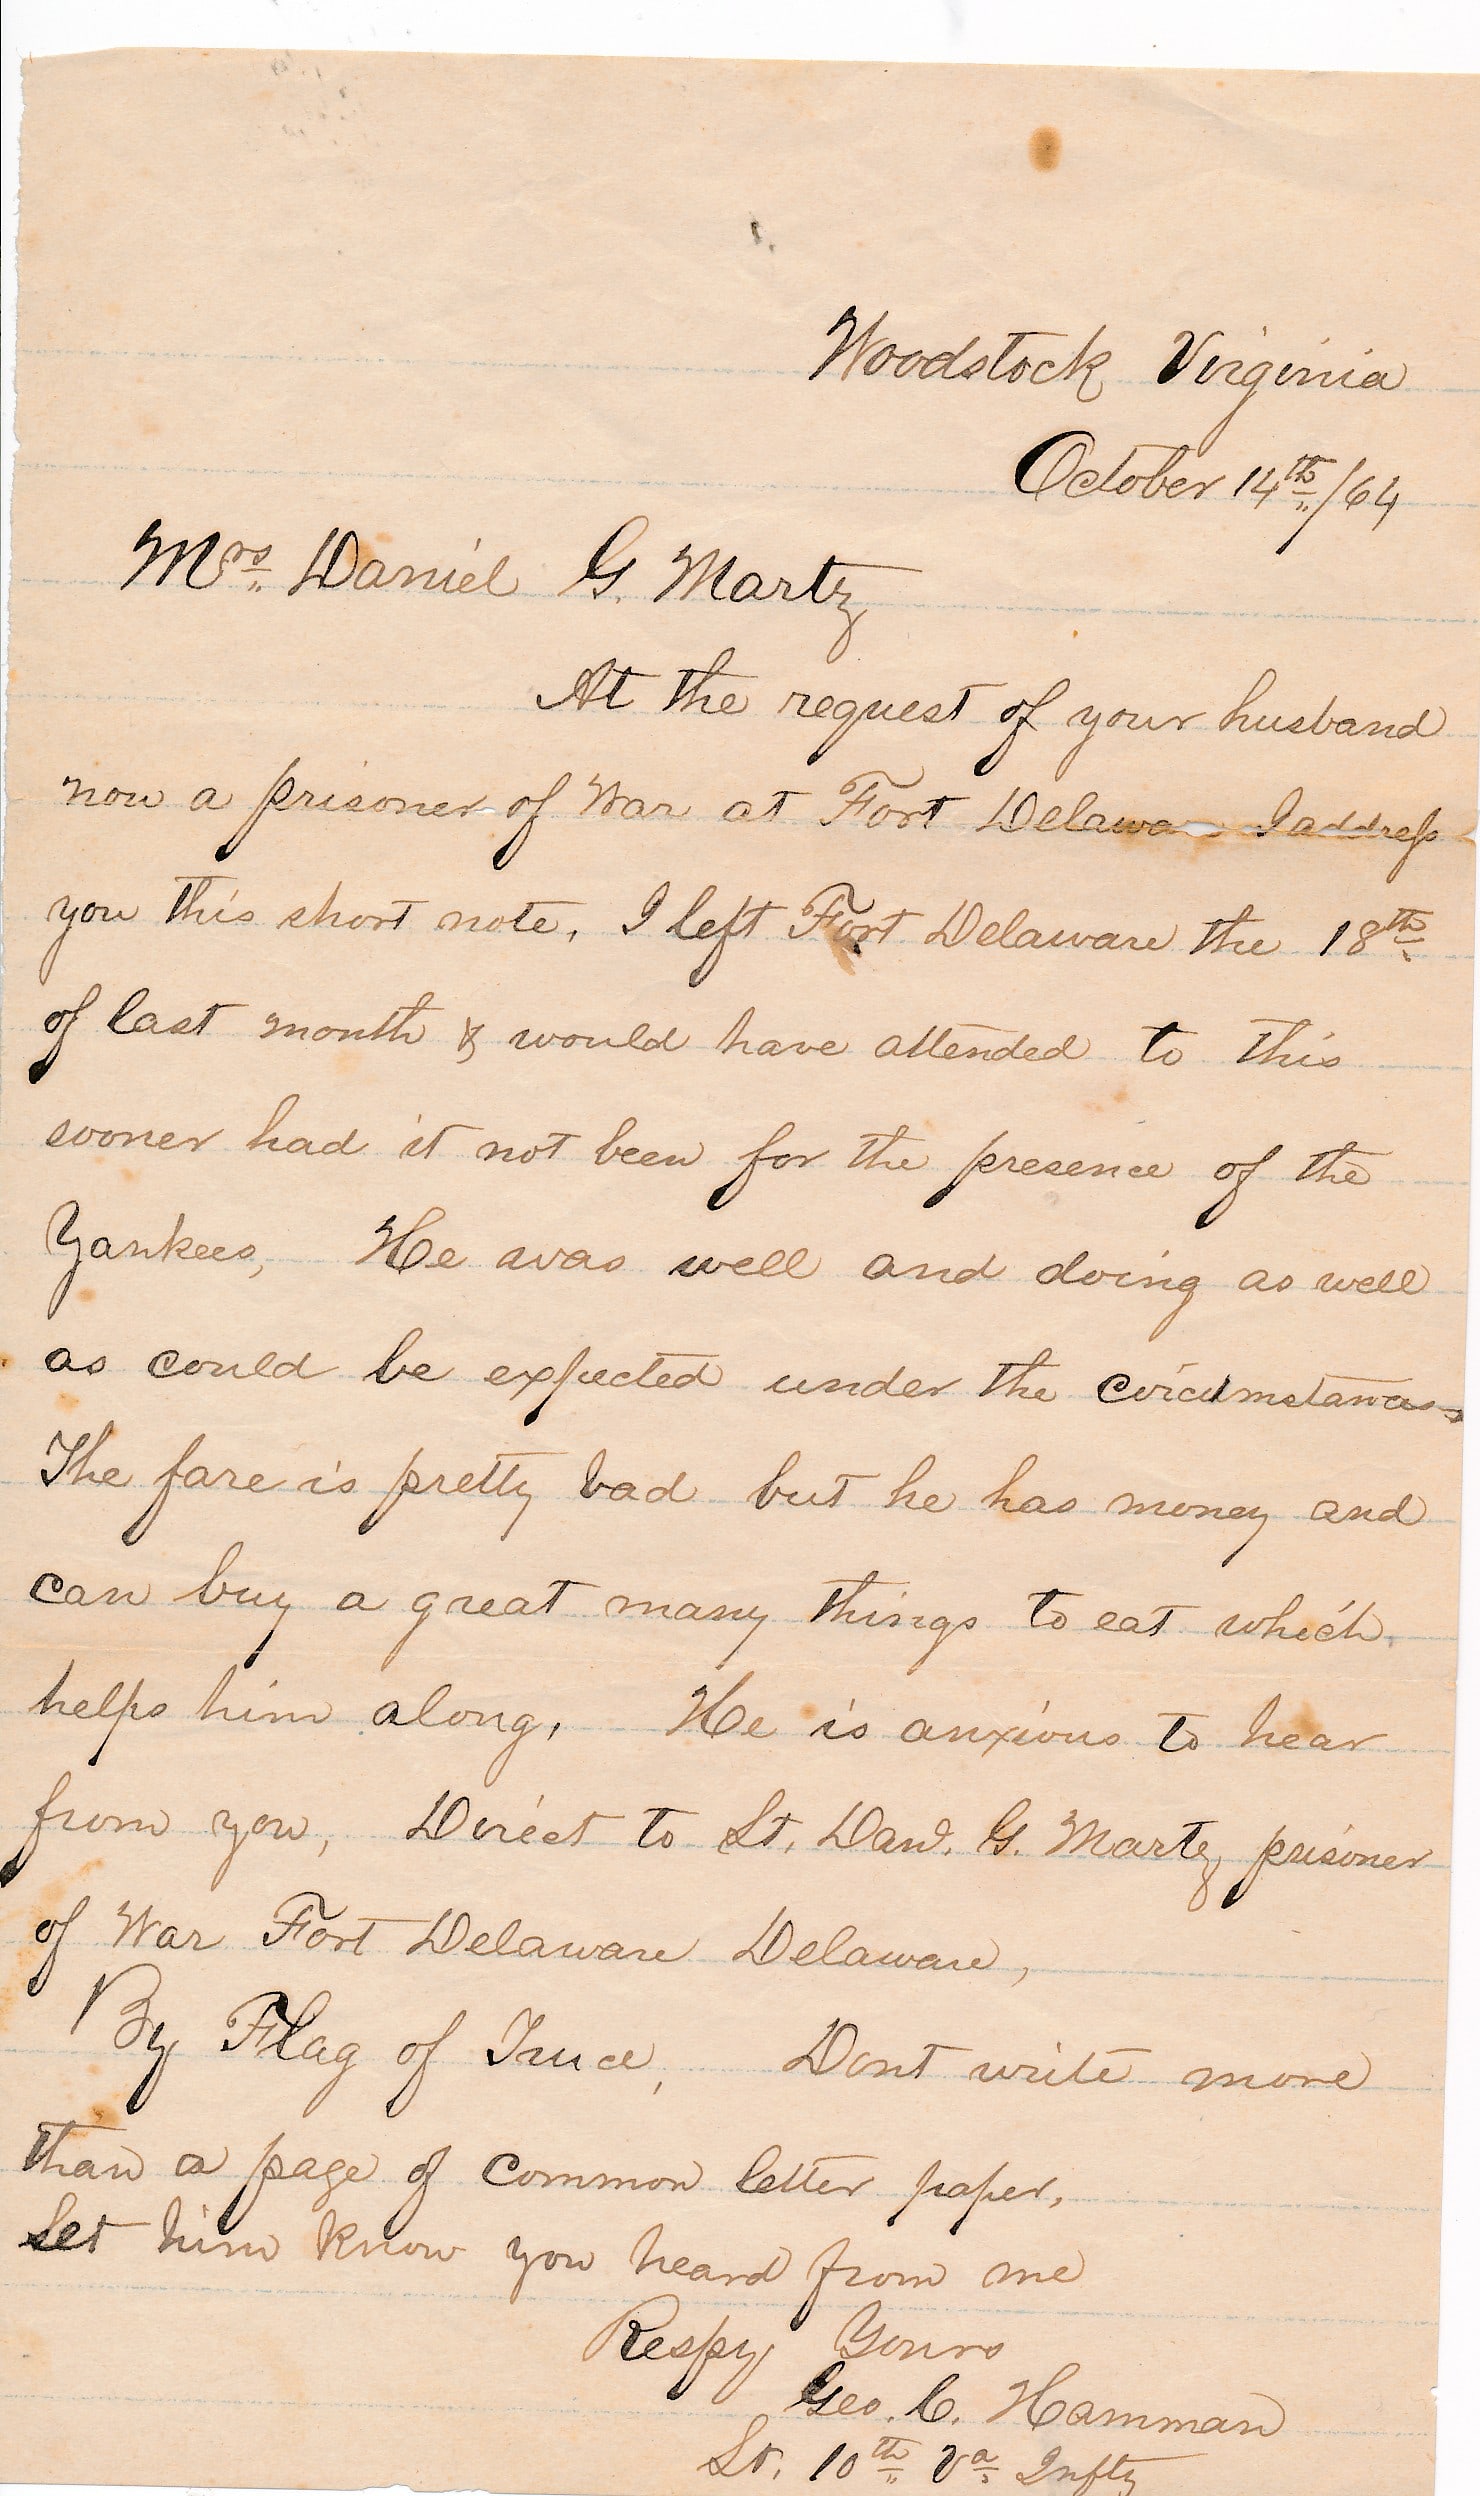 Woodstock Virginia
October 14th/64
Mrs. Daniel G. Martz
At the request of your husband
now a prisoner of War at Fort Delaware I address
you this short note. I left Fort Delaware the 18th
of last month & would have attended to this
sooner had it not been for the presence of the
Yankees, He was well and doing as well
as could be expected under the circumstances
The fare is pretty bad but he has money and
can buy a great many things to eat which
helps him along. He is anxious to hear
from you, Direct to Lt. Danl. G. Martz, prisoner
of War Fort Delaware Delaware,
By Flag of Truce, Dont write more
than a page of common letter paper.
Let him know you heard from me
Respy Yours
Geo. C. Hamman
Lt. 10th Va Infty